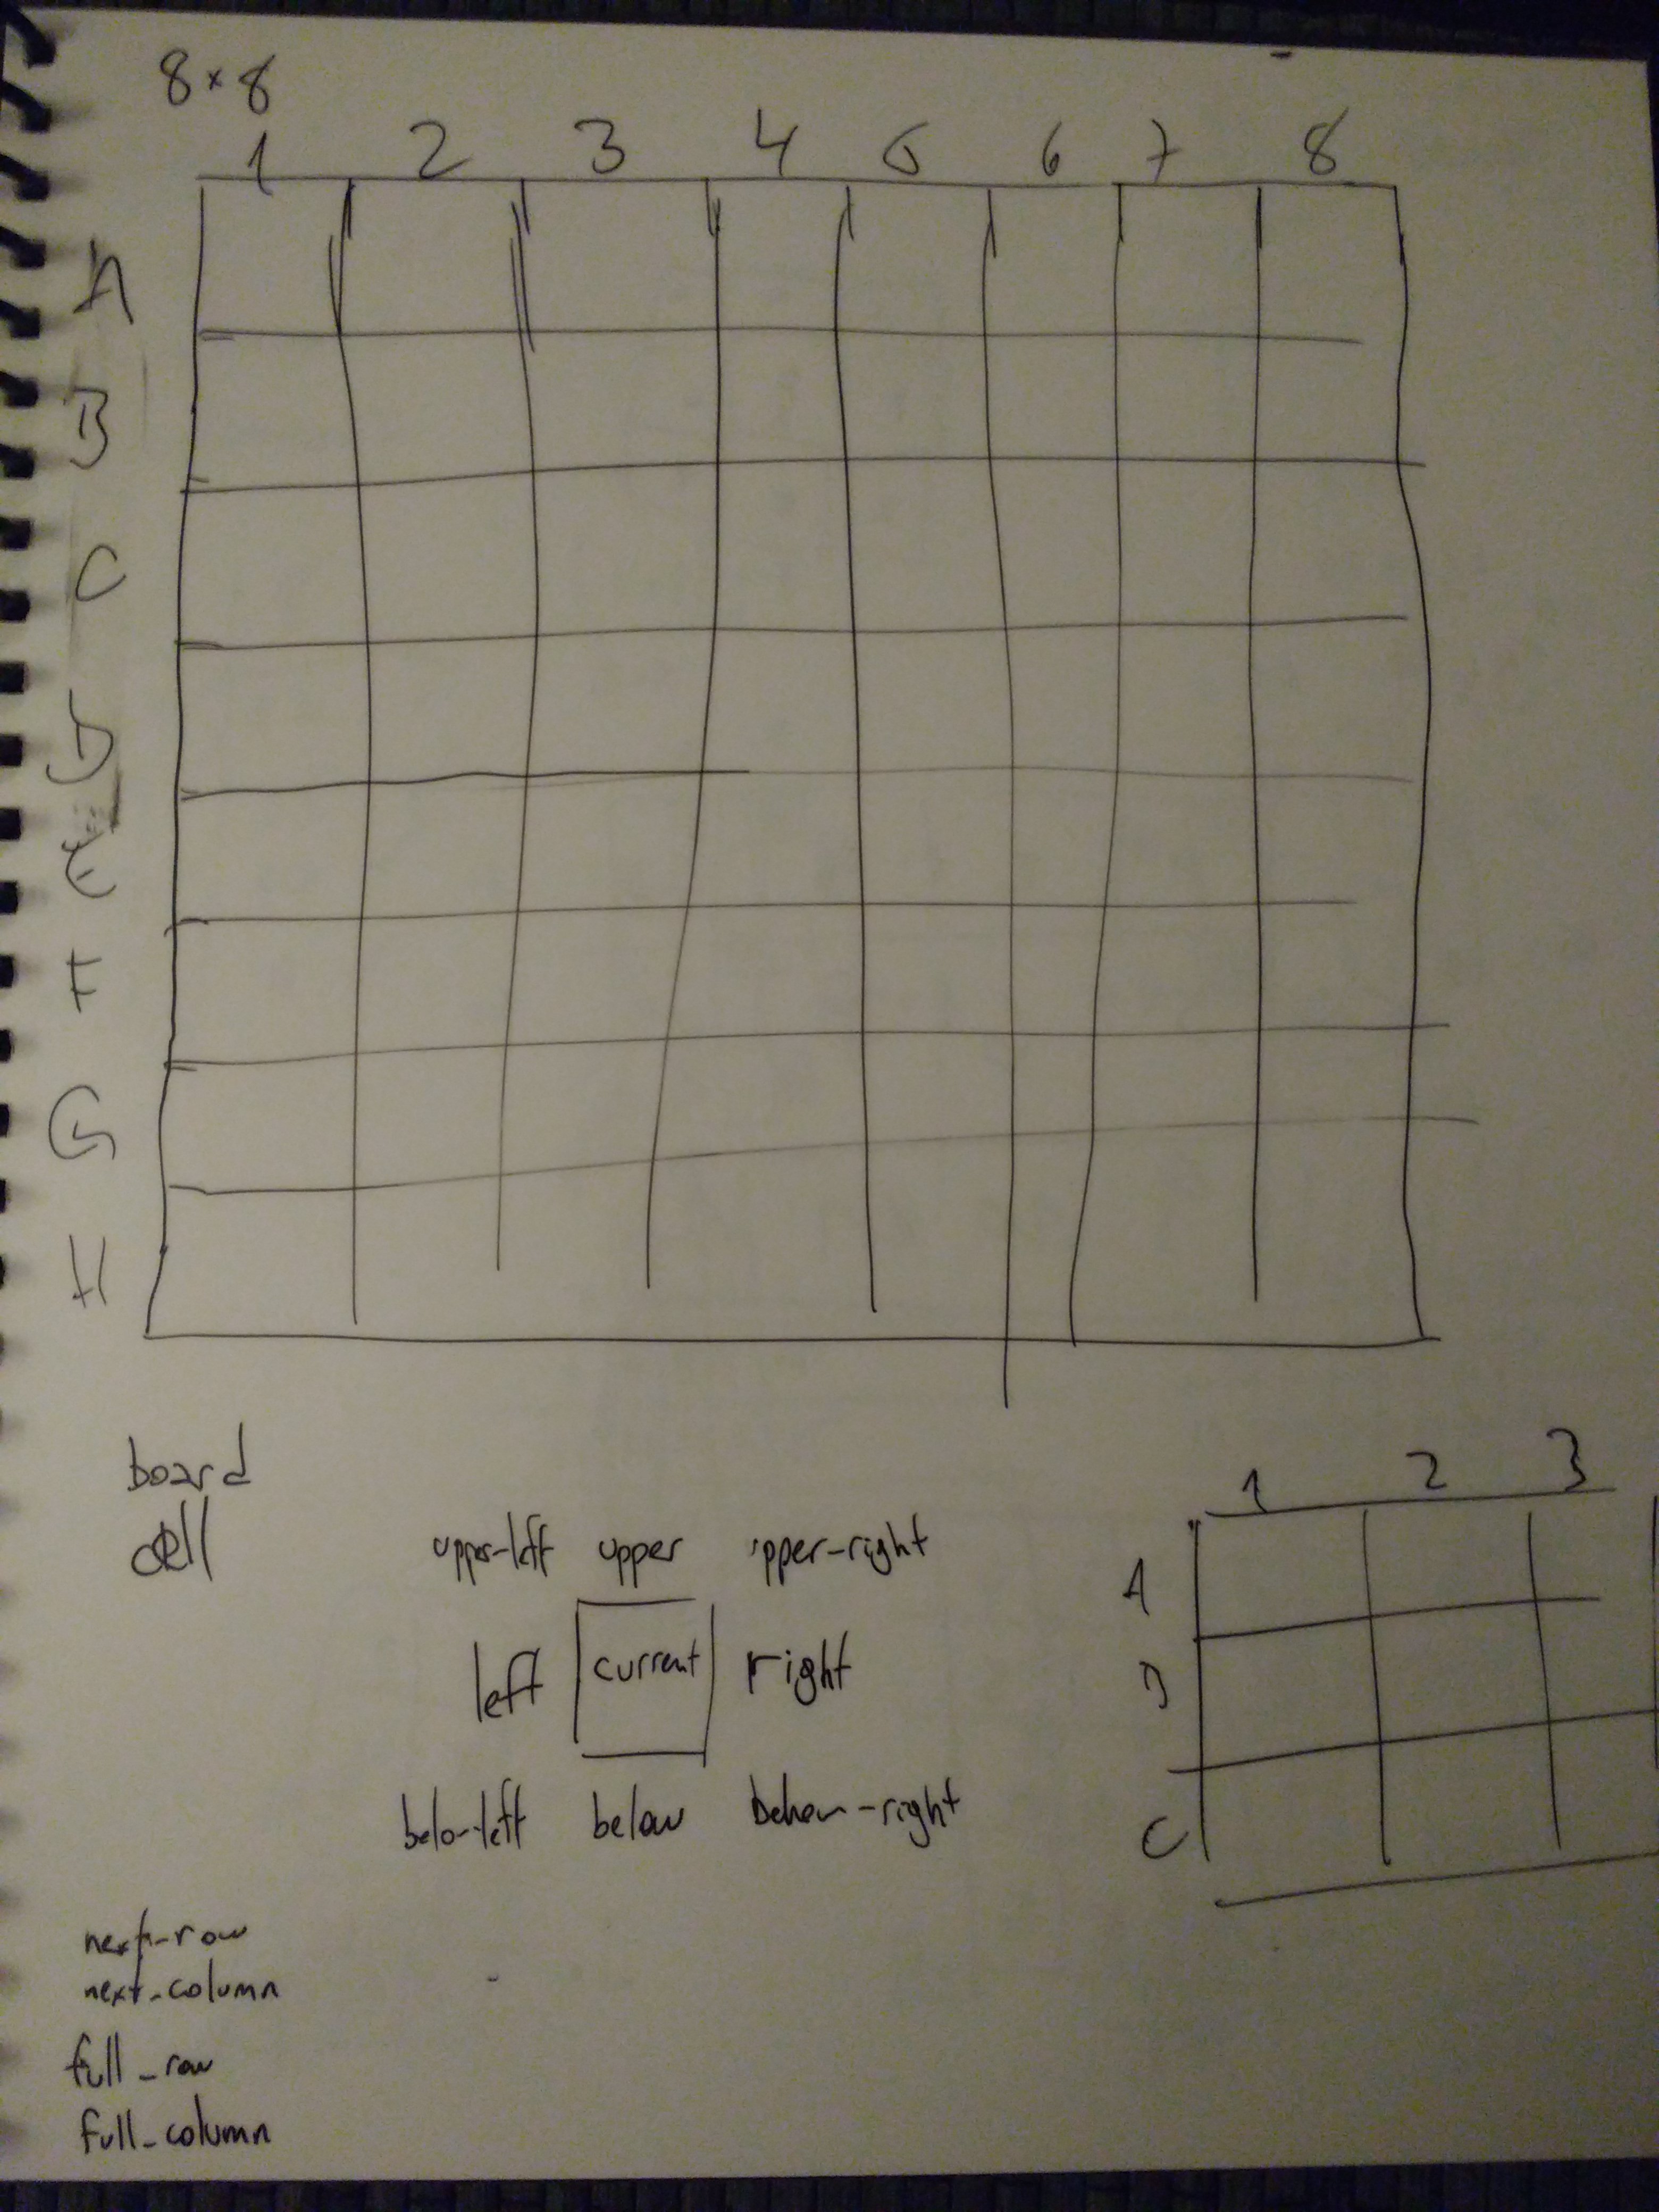 8×8
1 2 3 4 5 6 7 8
A
B
C
D
E
F
G
H
board
cell
upper-left upper upper-right
left current right
below-left below below-right
1 2 3
A
B
C
next-row
next-column
full_row
full-column